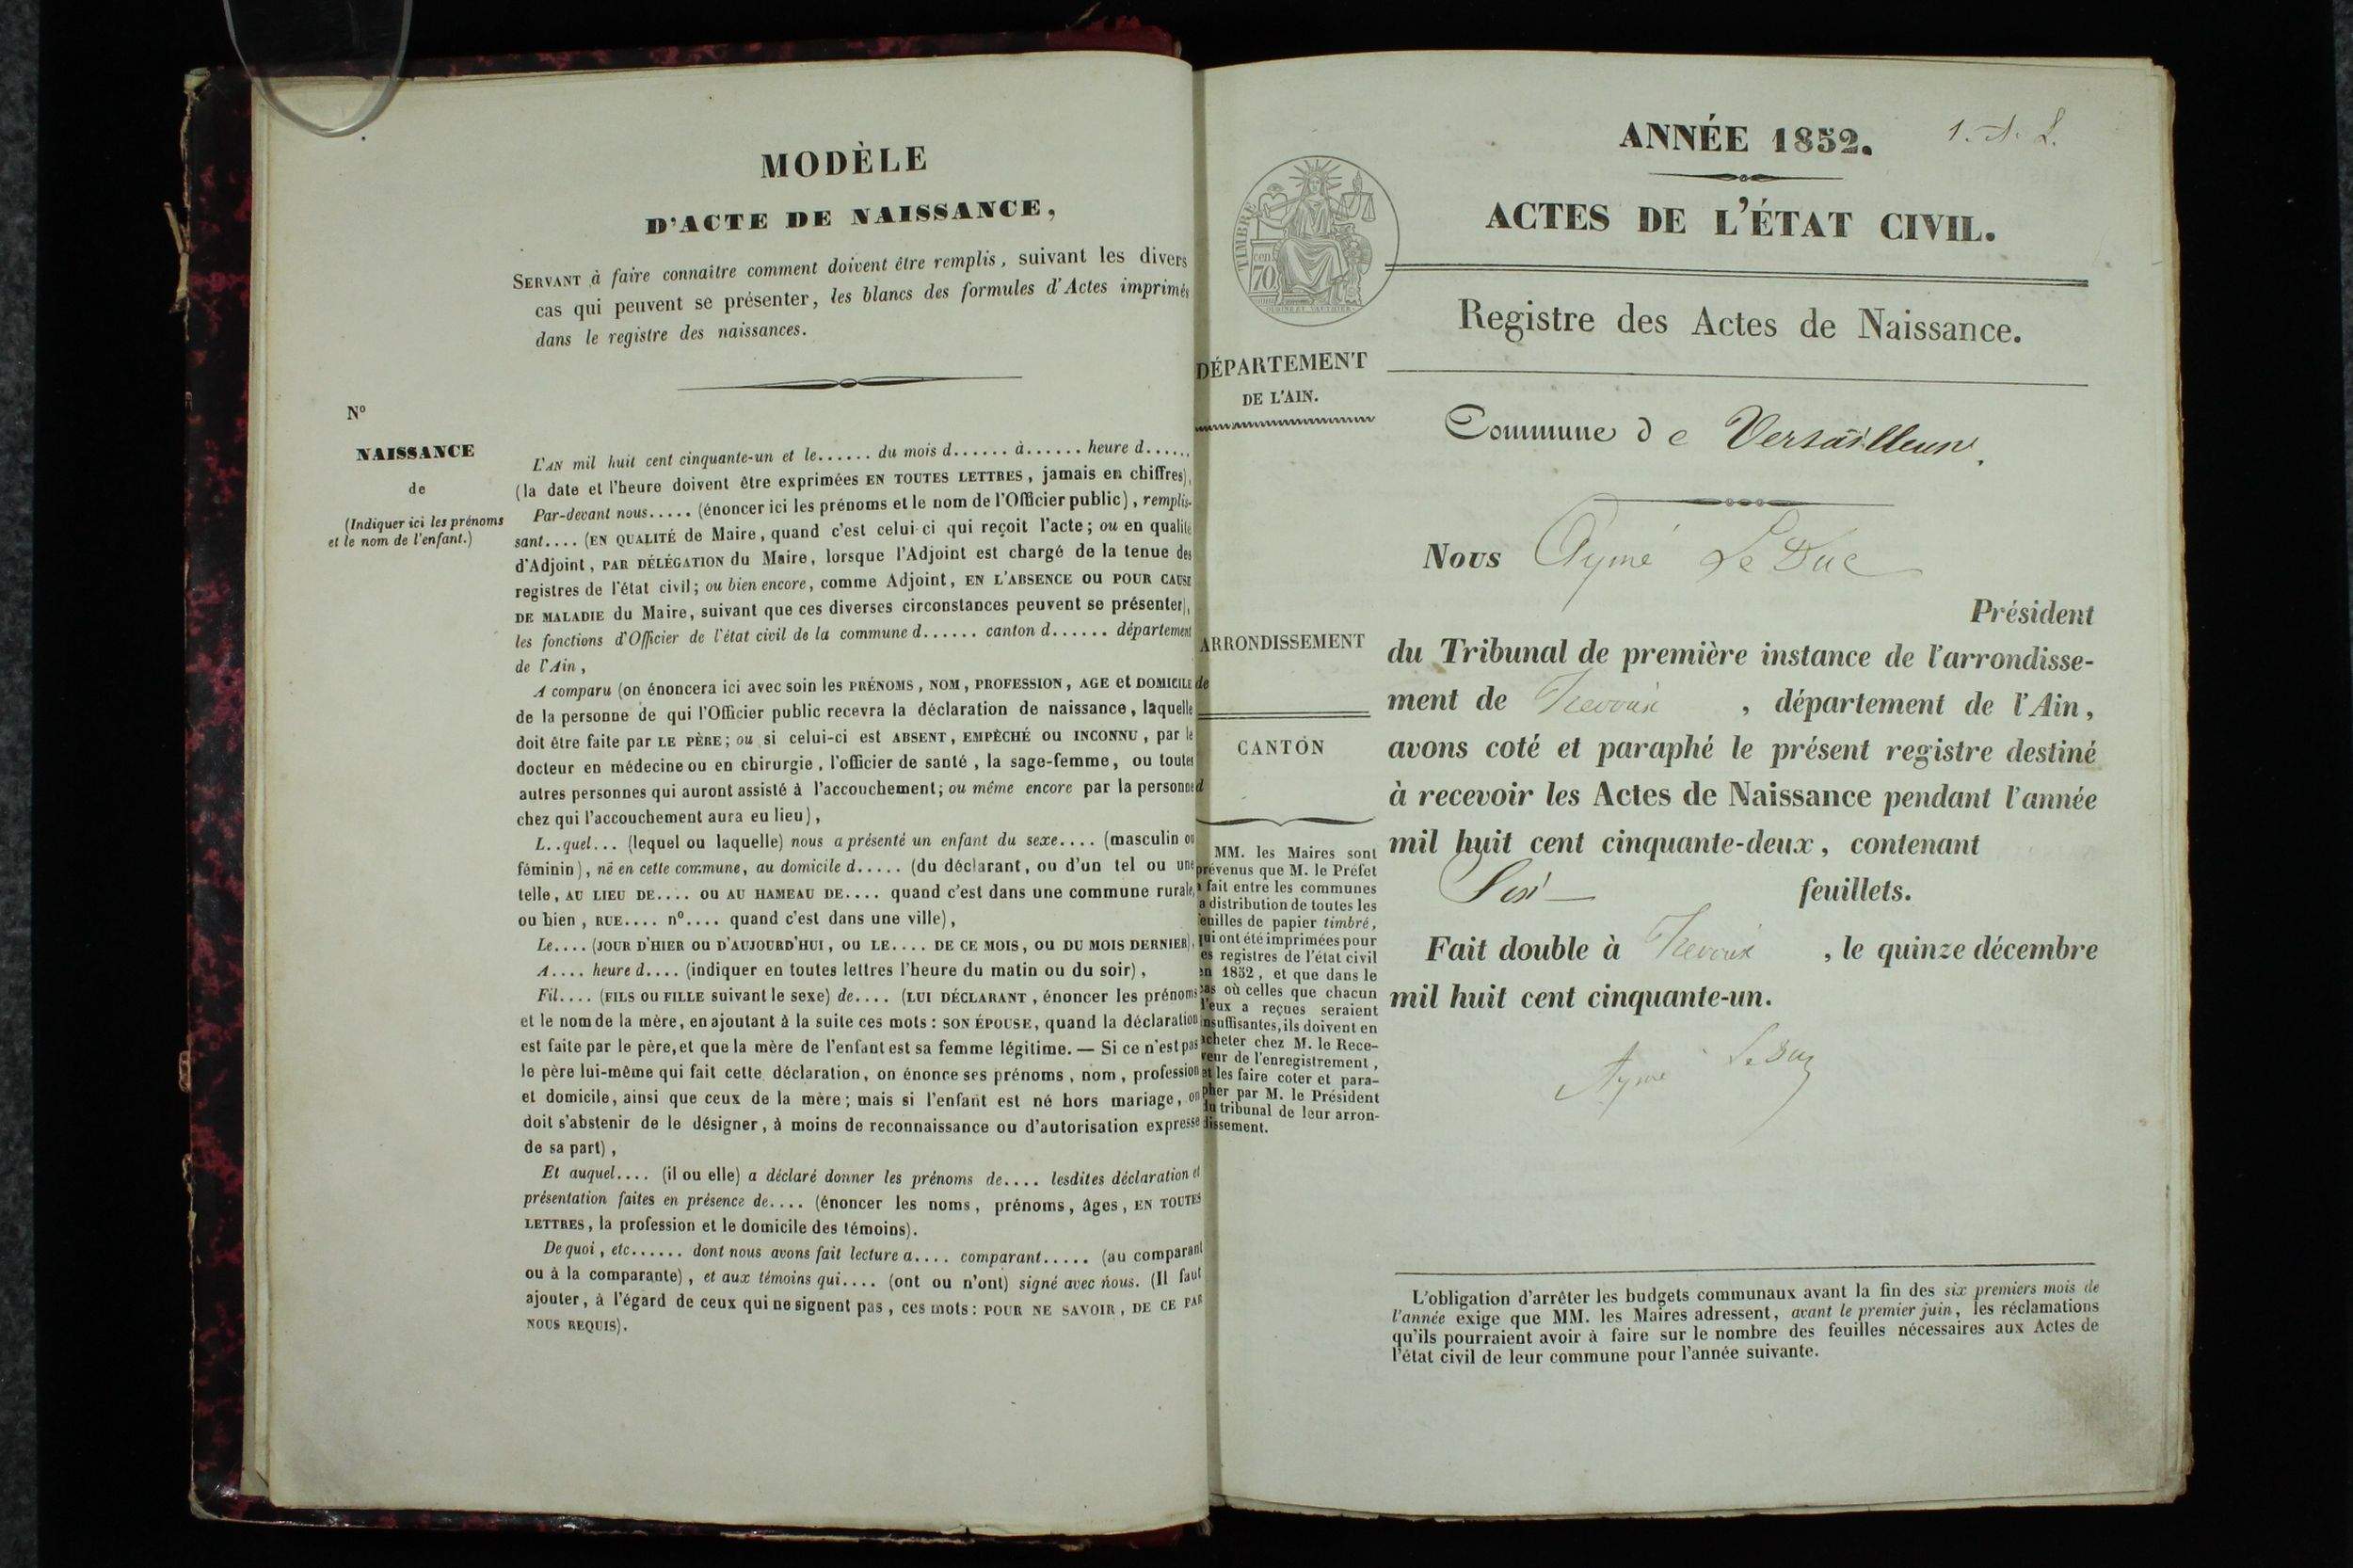 MODÈLE
D'ACTE DE NAISSANCE,
SERVANT à faire connaître comment doivent être remplis, suivant les divers
cas qui peuvent se présenter, les blancs des formules d'Actes imprimés
dans le registre des naissances.
N°
NAISSANCE
de
(Indiquer ici les prénoms
et le nom de l'enfant.)
L'AN mil huit cent cinquante-un et le...... du mois d...... à...... heure d......
(la date et l'heure doivent être exprimées EN TOUTES LETTRES, jamais en chiffres),
Par-devant nous..... (énoncer ici les prénoms et le nom de l'Officier public), remplis-
sant.... (EN QUALITÉ de Maire, quand c'est celui-ci qui reçoit l'acte; ou en qualité
d'Adjoint, PAR DÉLÉGATION du Maire, lorsque l'Adjoint est chargé de la tenue des
registres de l'état civil; ou bien encore, comme Adjoint, EN L'ABSENCE OU POUR CAUSE
DE MALADIE du Maire, suivant que ces diverses circonstances peuvent se présenter),
les fonctions d'Officier de l'état civil de la commune d...... canton d...... département
de l'Ain,
A comparu (on énoncera ici avec soin les PRÉNOMS, NOM, PROFESSION, AGE et DOMICILE
de la personne de qui l'Officier public recevra la déclaration de naissance, laquelle
doit être faite par LE PÈRE; ou si celui-ci est ABSENT, EMPÊCHÉ OU INCONNU, par le
docteur en médecine ou en chirurgie, l'officier de santé, la sage-femme, ou toutes
autres personnes qui auront assisté à l'accouchement; ou même encore par la personne
chez qui l'accouchement aura eu lieu),
L..quel... (lequel ou laquelle) nous a présenté un enfant du sexe.... (masculin ou
féminin), né en cette commune, au domicile d..... (du déclarant, ou d'un tel ou une
telle, AU LIEU DE.... OU AU HAMEAU DE.... quand c'est dans une commune rurale,
ou bien, RUE.... n°.... quand c'est dans une ville),
Le.... (JOUR D'HIER OU D'AUJOURD'HUI, OU LE.... DE CE MOIS, OU DU MOIS DERNIER),
A.... heure d.... (indiquer en toutes lettres l'heure du matin ou du soir),
Fil.... (FILS OU FILLE suivant le sexe) de.... (LUI DÉCLARANT, énoncer les prénoms
et le nom de la mère, en ajoutant à la suite ces mots: SON ÉPOUSE, quand la déclaration
est faite par le père, et que la mère de l'enfant est sa femme légitime. — Si ce n'est pas
le père lui-même qui fait cette déclaration, on énonce ses prénoms, nom, profession
et domicile, ainsi que ceux de la mère; mais si l'enfant est né hors mariage, on
doit s'abstenir de le désigner, à moins de reconnaissance ou d'autorisation expresse
de sa part),
Et auquel.... (il ou elle) a déclaré donner les prénoms de.... lesdites déclaration et
présentation faites en présence de.... (énoncer les noms, prénoms, âges, EN TOUTES
LETTRES, la profession et le domicile des témoins).
De quoi, etc...... dont nous avons fait lecture a.... comparant..... (au comparant
ou à la comparante), et aux témoins qui.... (ont ou n'ont) signé avec nous. (Il faut
ajouter, à l'égard de ceux qui ne signent pas, ces mots: POUR NE SAVOIR, DE CE PAR
NOUS REQUIS).
TIMBRE
cen
70
DÉPARTEMENT
DE L'AIN.
ARRONDISSEMENT
de
CANTON
d
MM. les Maires sont
prévenus que M. le Préfet
a fait entre les communes
la distribution de toutes les
feuilles de papier timbré,
qui ont été imprimées pour
les registres de l'état civil
en 1852, et que dans le
cas où celles que chacun
d'eux a reçues seraient
insuffisantes, ils doivent en
acheter chez M. le Rece-
veur de l'enregistrement,
et les faire coter et para-
pher par M. le Président
du tribunal de leur arron-
dissement.
1. A. L.
ANNÉE 1852.
ACTES DE L'ÉTAT CIVIL.
Registre des Actes de Naissance.
Commune de Versailleux.
NOUS Aymé Le Duc
Président
du Tribunal de première instance de l'arrondisse-
ment de Trevoux, département de l'Ain,
avons coté et paraphé le présent registre destiné
à recevoir les Actes de Naissance pendant l'année
mil huit cent cinquante-deux, contenant
Six feuillets.
Fait double à Trevoux, le quinze décembre
mil huit cent cinquante-un.
Aymé Le Duc
L'obligation d'arrêter les budgets communaux avant la fin des six premiers mois de
l'année exige que MM. les Maires adressent, avant le premier juin, les réclamations
qu'ils pourraient avoir à faire sur le nombre des feuilles nécessaires aux Actes de
l'état civil de leur commune pour l'année suivante.